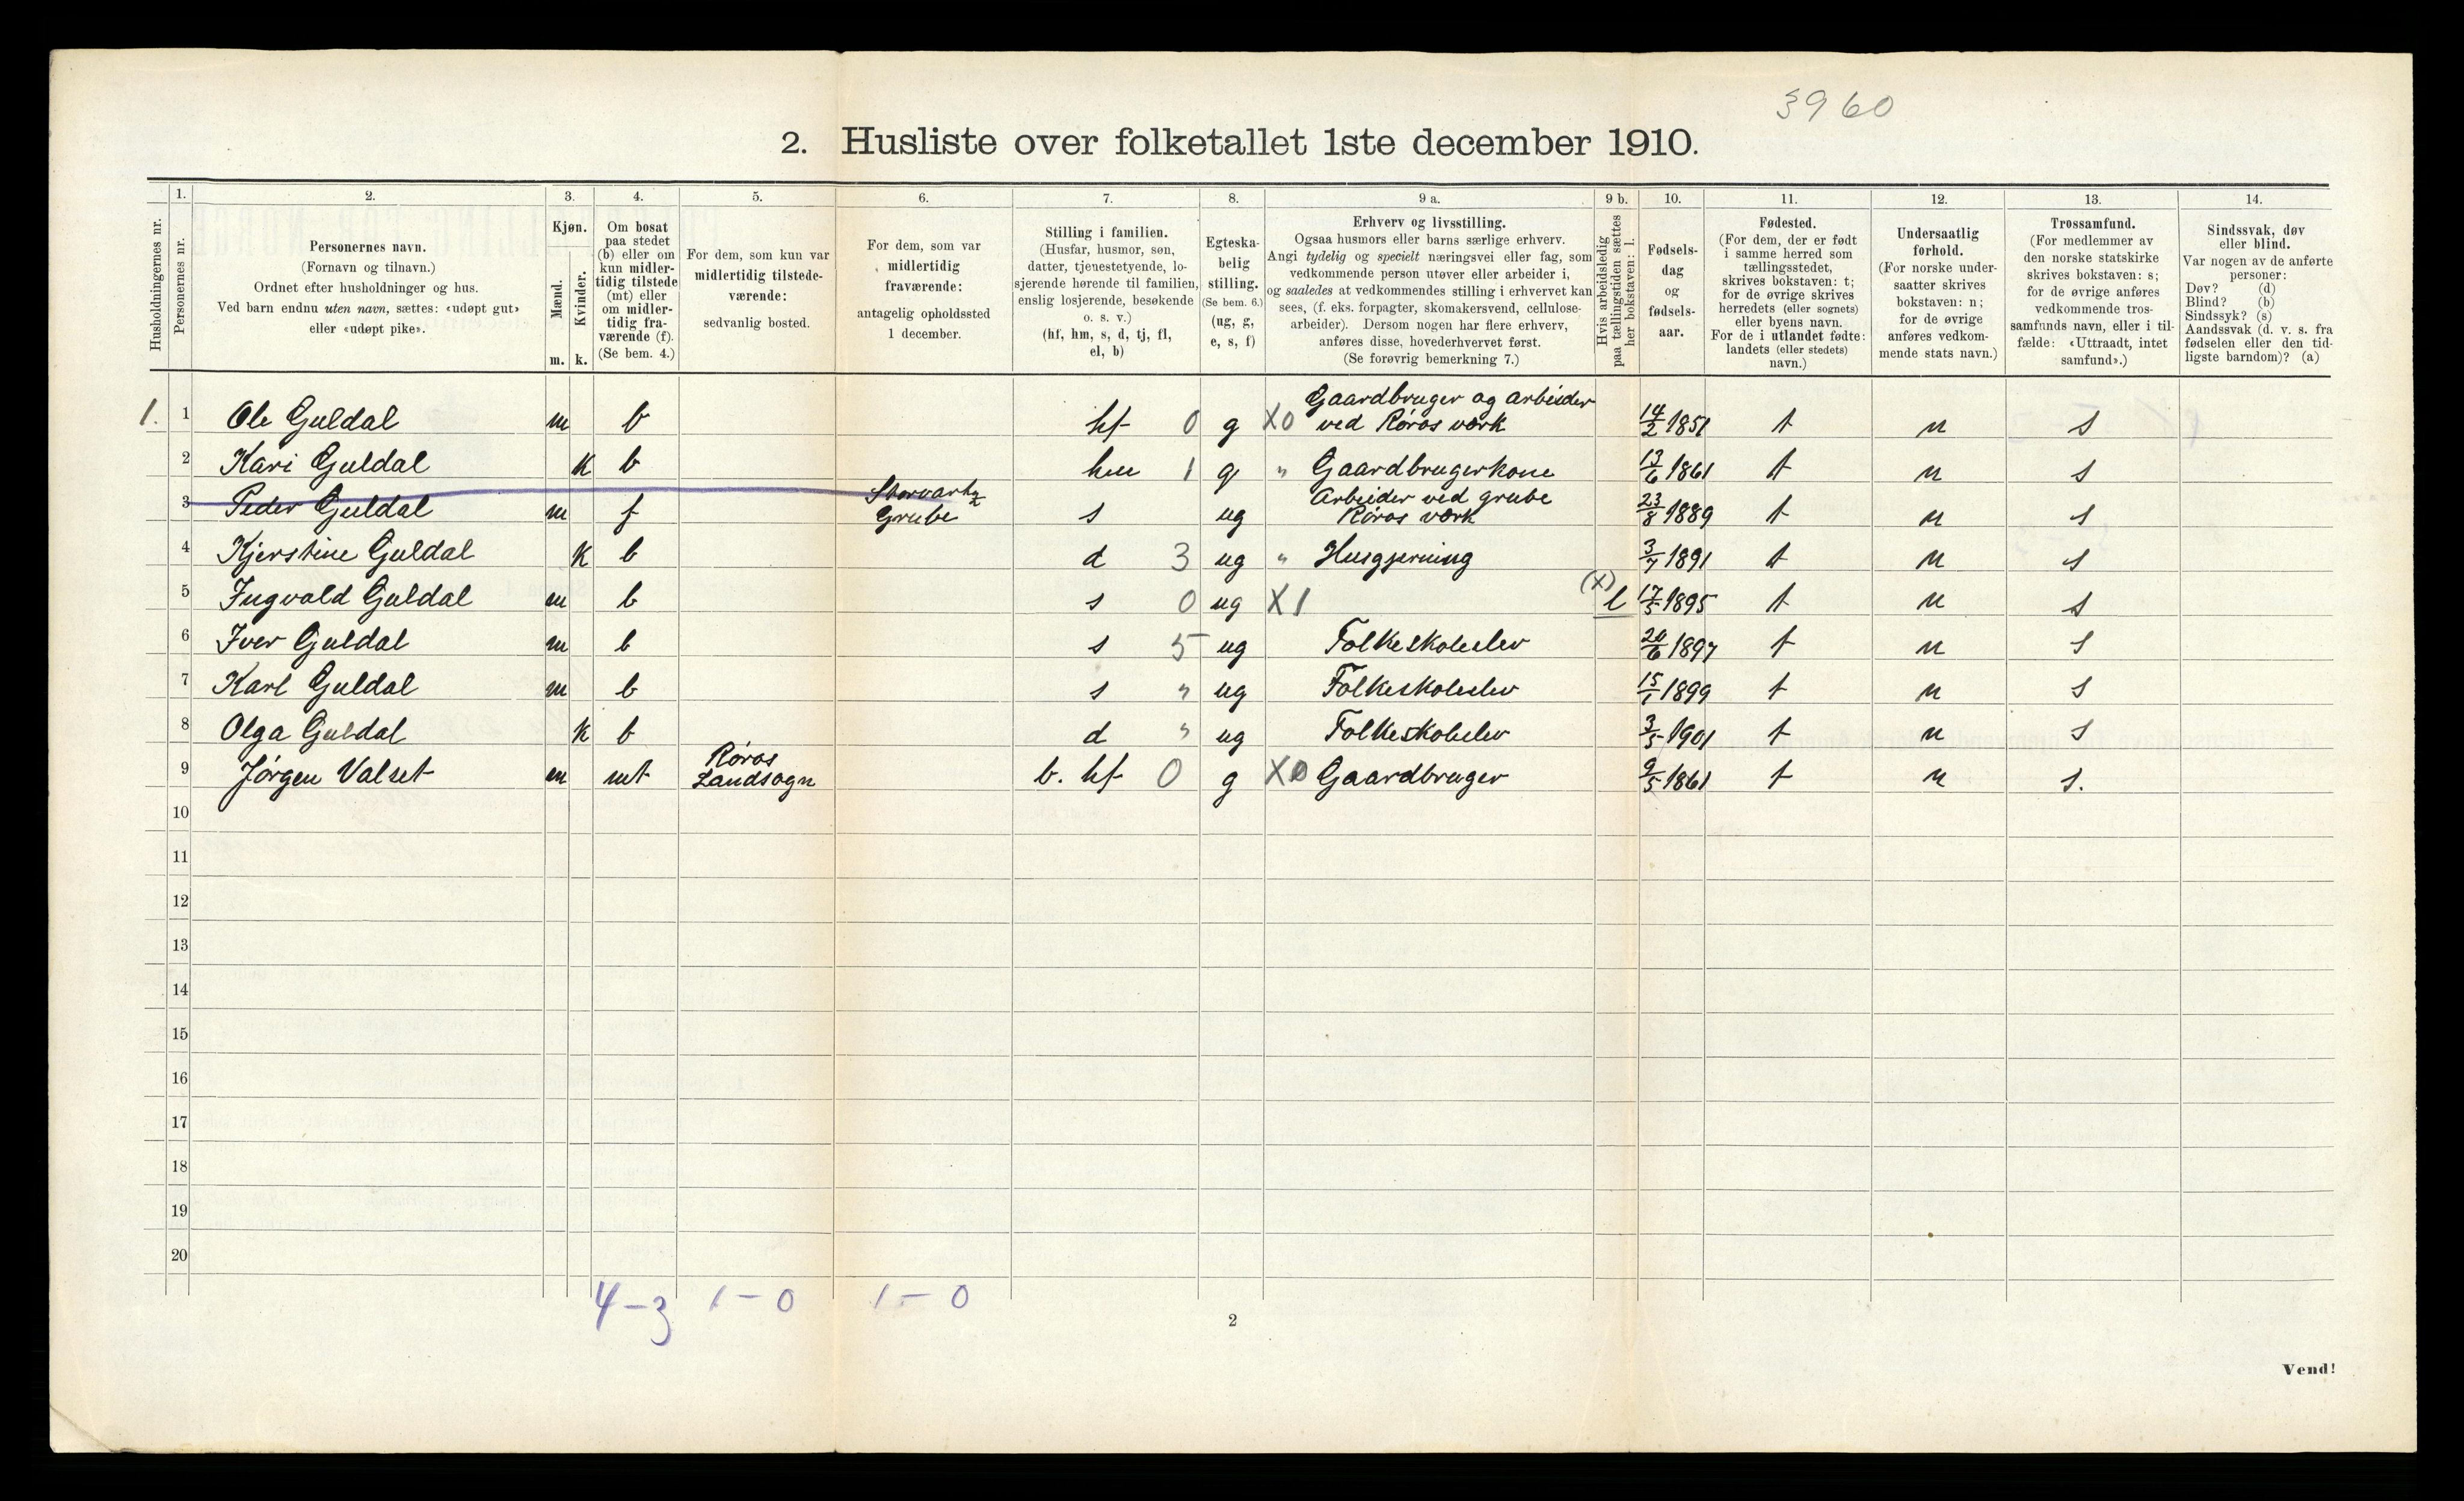 3960
2. Husliste over folketallet 1ste december 1910.
Husholdningernes nr.
1.
Personernes nr.
2.
Personernes navn.
(Fornavn og tilnavn.)
Ordnet efter husholdninger og hus.
Ved barn endnu uten navn, sættes: «udøpt gut»
eller «udøpt pike».
3.
Kjøn.
Mænd.
Kvinder.
m. k.
4.
Om bosat
paa stedet
(b) eller om
kun midler-
tidig tilstede
(mt) eller
om midler-
tidig fra-
værende (f).
(Se bem. 4.)
5.
For dem, som kun var
midlertidig tilstede-
værende:
sedvanlig bosted.
6.
For dem, som var
midlertidig
fraværende:
antagelig opholdssted
1 december.
7.
Stilling i familien.
(Husfar, husmor, søn,
datter, tjenestetyende, lo-
sjerende hørende til familien,
enslig losjerende, besøkende
o. s. v.)
(hf, hm, s, d, tj, fl,
el, b)
8.
Egteska-
belig
stilling.
(Se bem. 6.)
(ug, g,
e, s, f)
9 a.
Erhverv og livsstilling.
Ogsaa husmors eller barns særlige erhverv.
Angi tydelig og specielt næringsvei eller fag, som
vedkommende person utøver eller arbeider i,
og saaledes at vedkommendes stilling i erhvervet kan
sees, (f. eks. forpagter, skomakersvend, cellulose-
arbeider). Dersom nogen har flere erhverv,
anføres disse, hovederhvervet først.
(Se forøvrig bemerkning 7.)
9 b.
Hvis arbeidsledig
paa tællingstiden sættes
her bokstaven: l.
10.
Fødsels-
dag
og
fødsels-
aar.
11.
Fødested.
(For dem, der er født
i samme herred som
tællingsstedet,
skrives bokstaven: t;
for de øvrige skrives
herredets (eller sognets)
eller byens navn.
For de i utlandet fødte:
landets (eller stedets)
navn.)
12.
Undersaatlig
forhold.
(For norske under-
saatter skrives
bokstaven: n;
for de øvrige
anføres vedkom-
mende stats navn.)
13.
Trossamfund.
(For medlemmer av
den norske statskirke
skrives bokstaven: s;
for de øvrige anføres
vedkommende tros-
samfunds navn, eller i til-
fælde: «Uttraadt, intet
samfund».)
14.
Sindssvak, døv
eller blind.
Var nogen av de anførte
personer:
Døv? (d)
Blind? (b)
Sindssyk? (s)
Aandssvak (d. v. s. fra
fødselen eller den tid-
ligste barndom)? (a)
Gaardbruger og arbeider
1. 1 Ole Guldal m b hf 0 g X0 ved Røros værk 14/2 1851 t n s
2 Kari Guldal k b hm 1 g " Gaardbrugerkone 13/6 1861 t n s
Storvartz Arbeider ved grube
3 Peder Guldal m f Grube s ug Røros værk 23/8 1889 t n s
4 Kjerstine Guldal k b d 3 ug " Husgjerning 3/7 1891 t n s
5 Ingvald Guldal m b s 0 ug X1 (x) l 17/5 1895 t n s
6 Iver Guldal m b s 5 ug Folkeskoleelev 20/6 1897 t n s
7 Karl Guldal m b s " ug Folkeskoleelev 15/1 1899 t n s
8 Olga Guldal k b d " ug Folkeskoleelev 3/5 1901 t n s
Røros
9 Jørgen Valset m mt Landsogn b. hf 0 g X0 Gaardbruger 9/5 1861 t n s.
10
11
12
13
14
15
16
17
18
19
20
4-3 1-0 1-0
2
Vend!